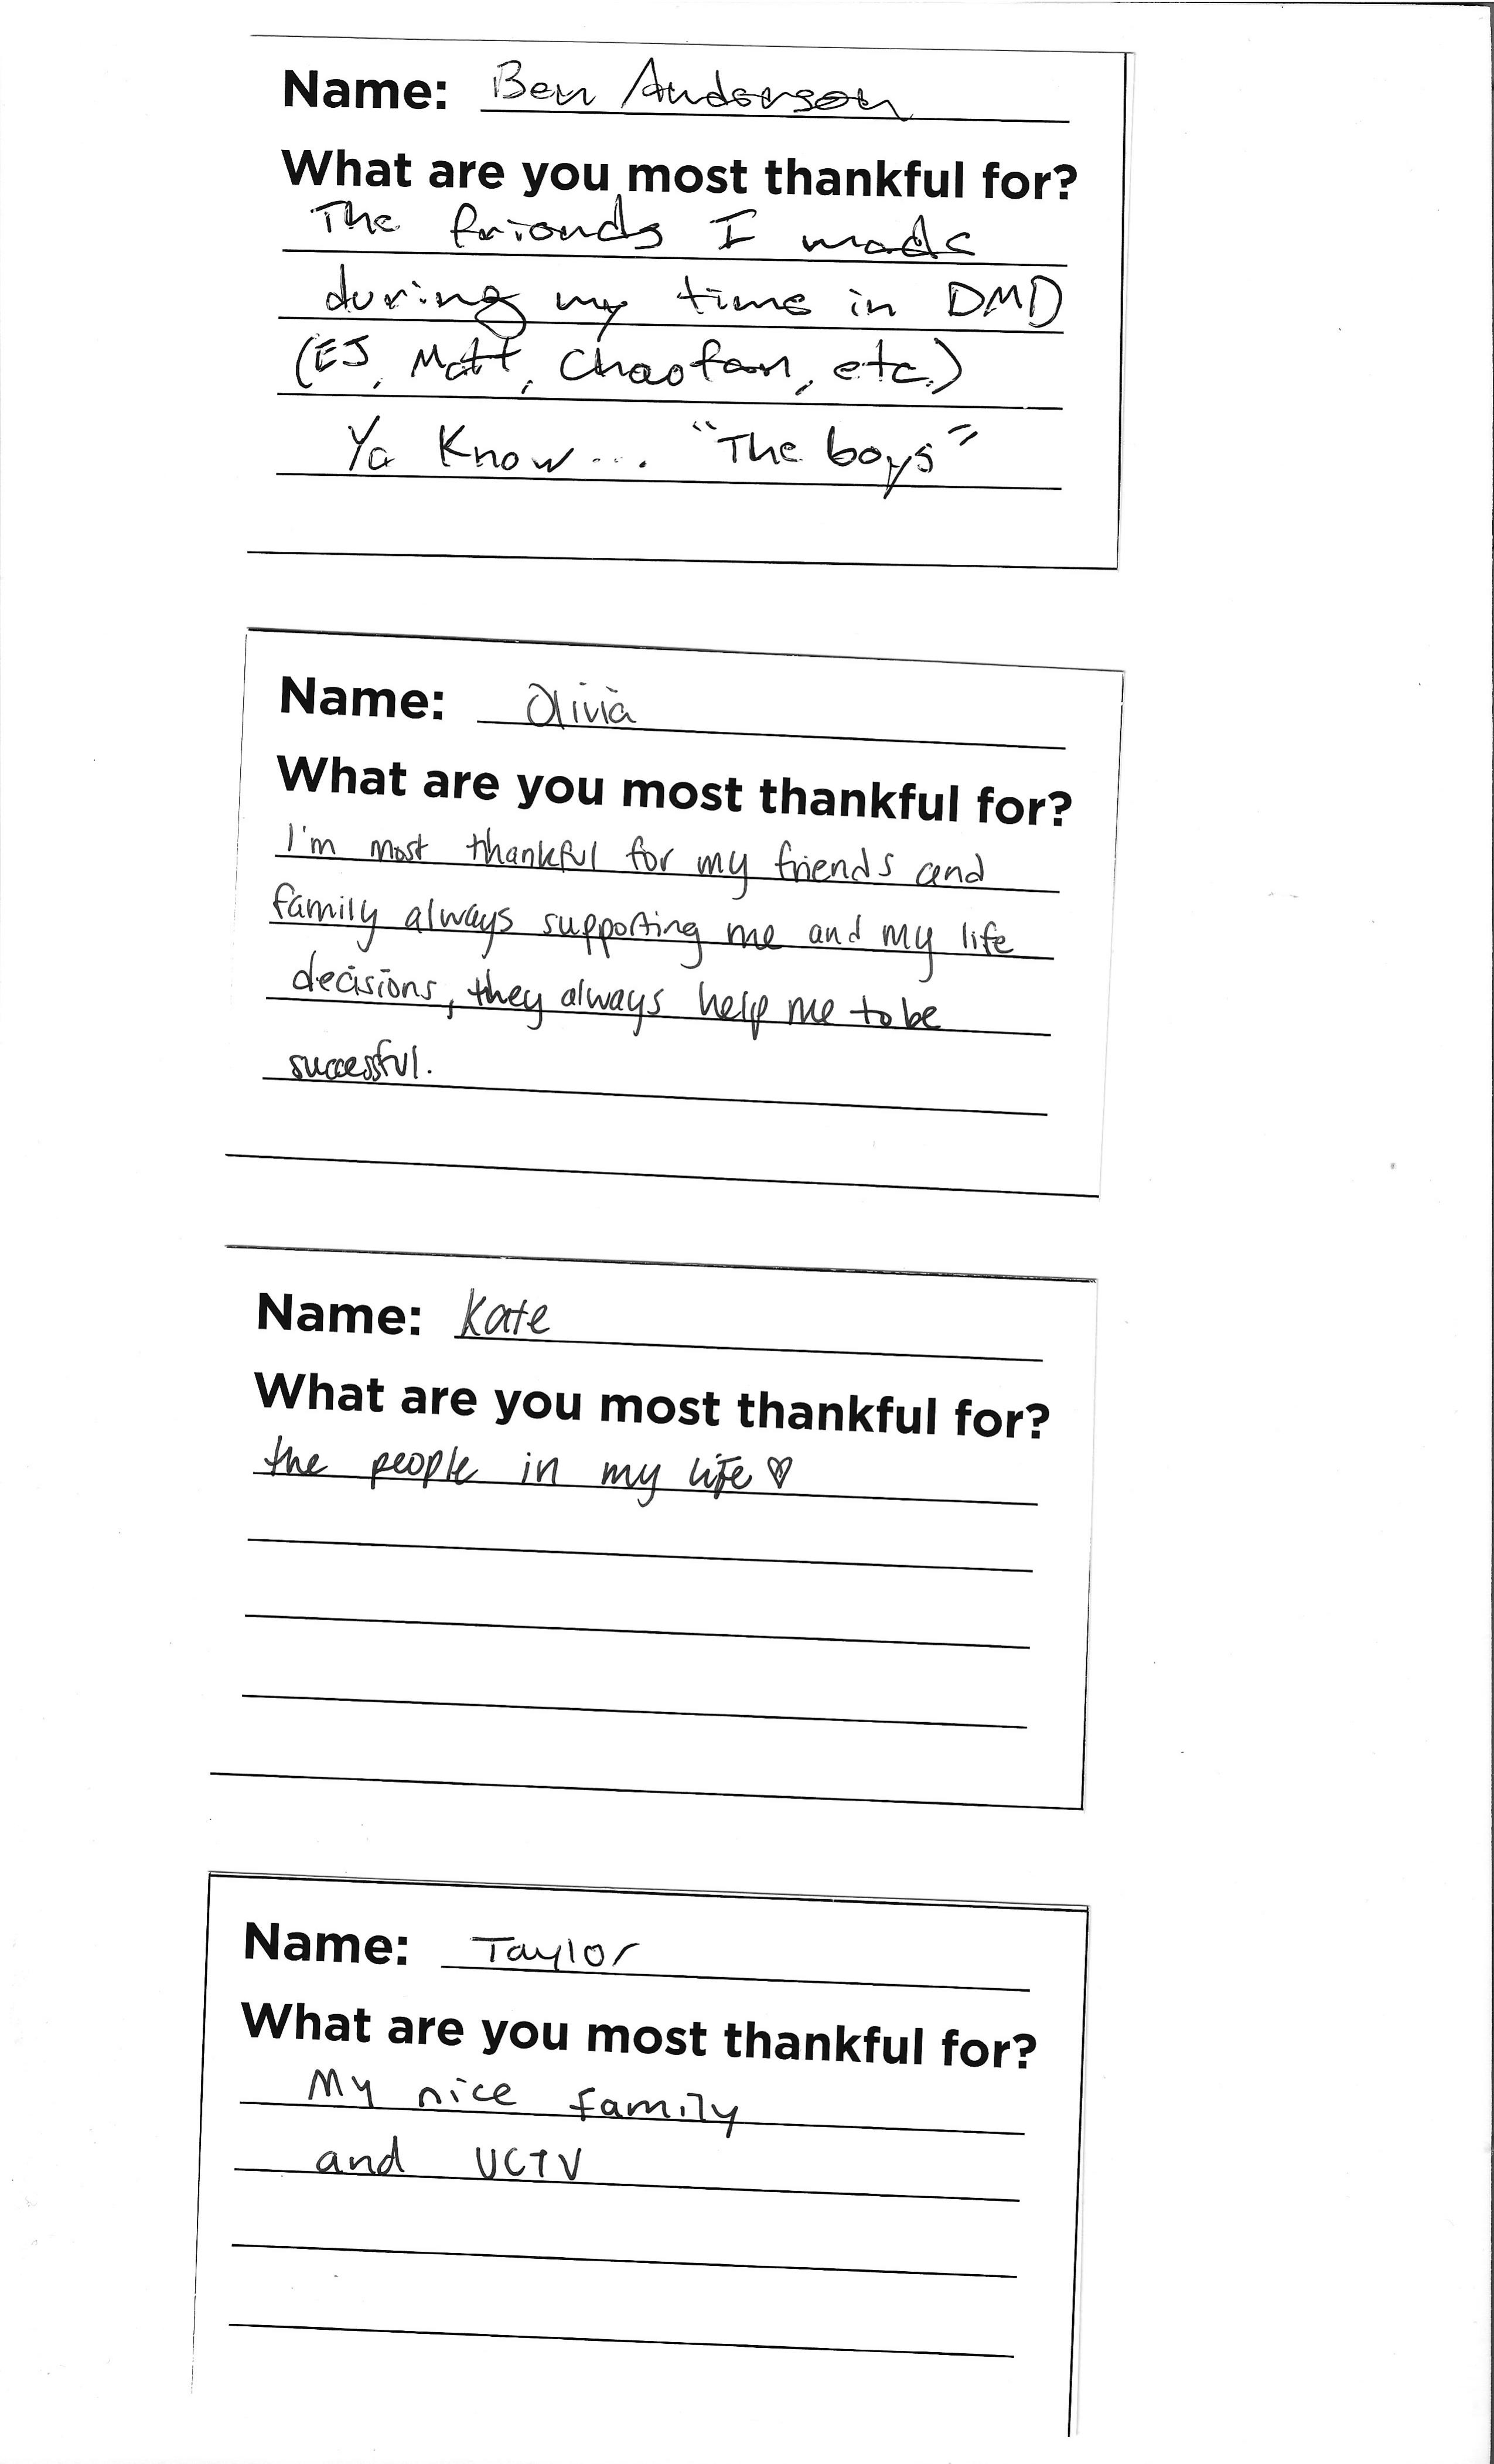 Name: Ben Anderson
What are you most thankful for?
The friends I made
during my time in DMD
(EJ, Matt, Chaofan, etc.)
Ya Know... "The boys"
Name: Olivia
What are you most thankful for?
I'm most thankful for my friends and
family always supporting me and my life
decisions, they always help me to be
successful.
Name: Kate
What are you most thankful for?
the people in my life ♡
Name: Taylor
What are you most thankful for?
My nice family
and UCTV